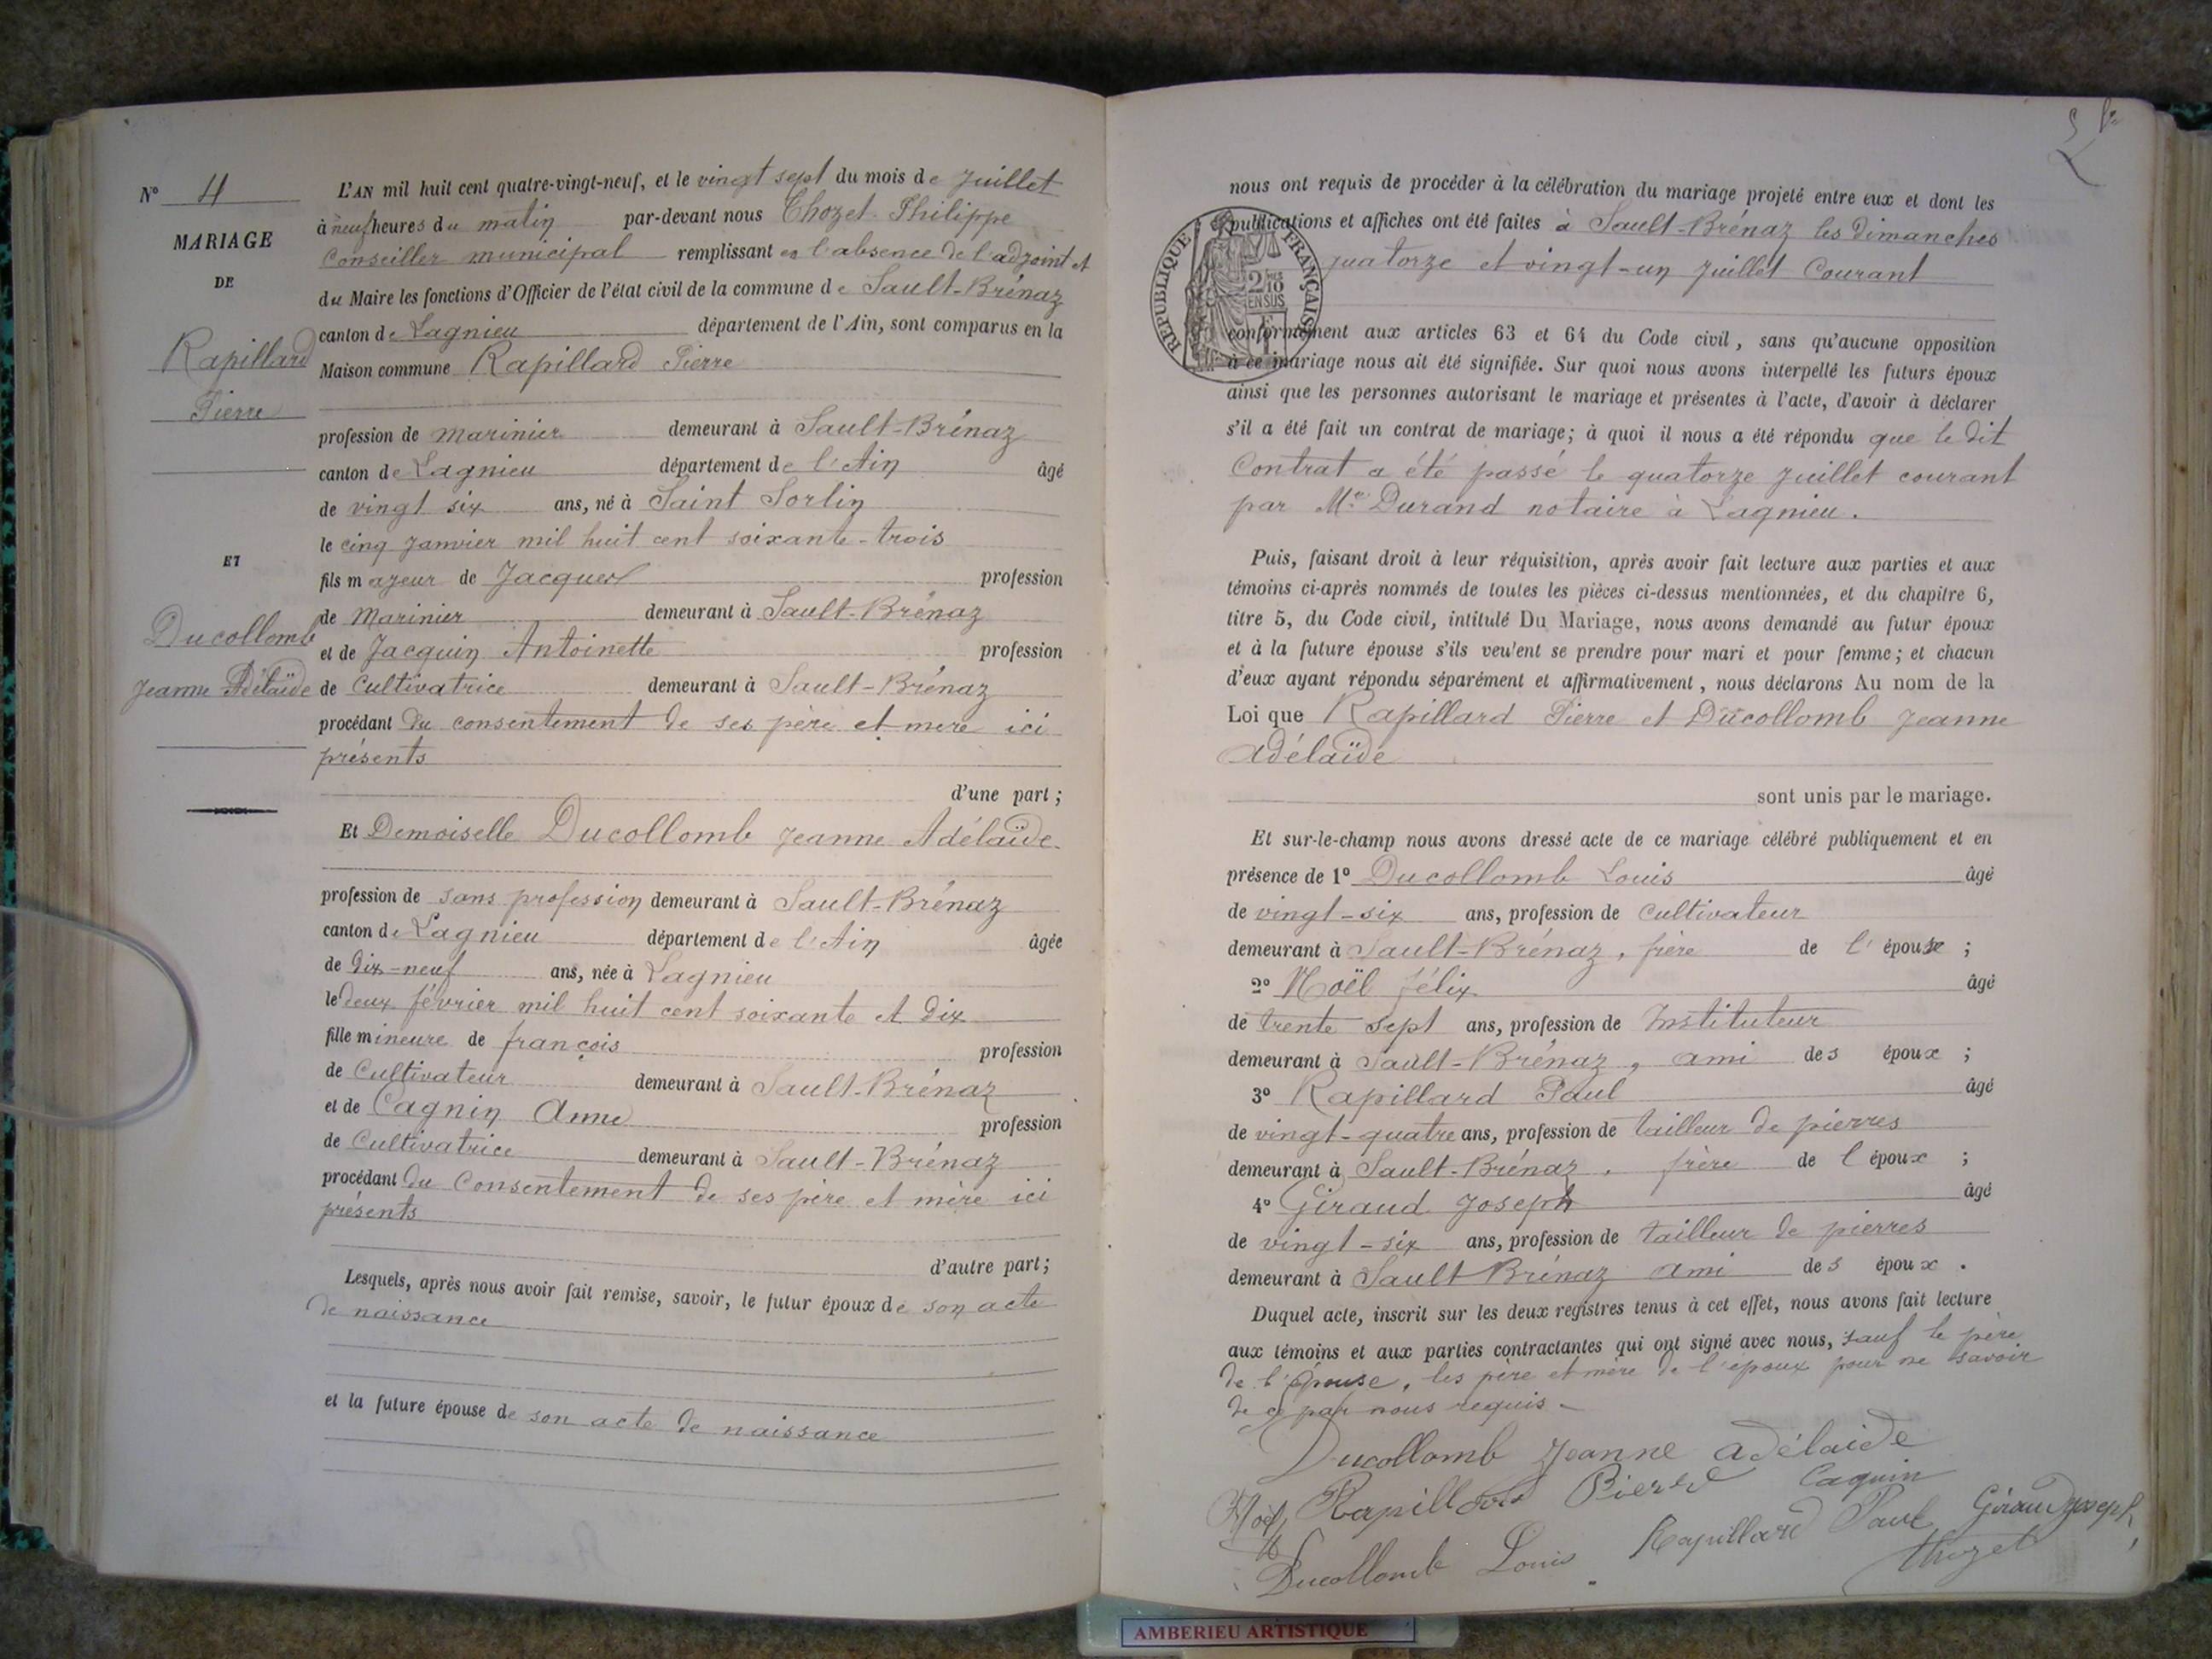 N° 4
MARIAGE
DE
Rapillard
Pierre
ET
Ducollomb
Jeanne Adélaïde
L'AN mil huit cent quatre-vingt-neuf, et le vingt sept du mois de juillet
à neuf heures du matin par-devant nous Thozet Philippe
Conseiller municipal remplissant en l'absence de l'adjoint et
du Maire les fonctions d'Officier de l'état civil de la commune de Sault-Brénaz
canton de Lagnieu département de l'Ain, sont comparus en la
Maison commune Rapillard Pierre
profession de marinier demeurant à Sault-Brénaz
canton de Lagnieu département de l'Ain âgé
de vingt six ans, né à Saint Sorlin
le cinq janvier mil huit cent soixante-trois
fils majeur de Jacques profession
de Marinier demeurant à Sault-Brénaz
et de Jacquin Antoinette profession
de Cultivatrice demeurant à Sault-Brénaz
procédant du consentement de ses père et mere ici
présents
d'une part ;
Et Demoiselle Ducollomb Jeanne Adélaïde
profession de sans profession demeurant à Sault-Brénaz
canton de Lagnieu département de l'Ain âgée
de dix-neuf ans, née à Lagnieu
le deux février mil huit cent soixante et dix
fille mineure de françois profession
de Cultivateur demeurant à Sault-Brénaz
et de Cagnin Anne profession
de Cultivatrice demeurant à Sault-Brénaz
procédant du Consentement de ses père et mère ici
présents
d'autre part ;
Lesquels, après nous avoir fait remise, savoir, le futur époux de son acte
de naissance
et la future épouse de son acte de naissance
nous ont requis de procéder à la célébration du mariage projeté entre eux et dont les
publications et affiches ont été faites à Sault-Brénaz les dimanches
quatorze et vingt-un juillet Courant
REPUBLIQUE FRANÇAISE
2/10
EN SUS
conformément aux articles 63 et 64 du Code civil, sans qu'aucune opposition
à ce mariage nous ait été signifiée. Sur quoi nous avons interpellé les futurs époux
ainsi que les personnes autorisant le mariage et présentes à l'acte, d'avoir à déclarer
s'il a été fait un contrat de mariage; à quoi il nous a été répondu que le dit
Contrat a été passé le quatorze juillet courant
par Me Durand notaire à Lagnieu.
Puis, faisant droit à leur réquisition, après avoir fait lecture aux parties et aux
témoins ci-après nommés de toutes les pièces ci-dessus mentionnées, et du chapitre 6,
titre 5, du Code civil, intitulé Du Mariage, nous avons demandé au futur époux
et à la future épouse s'ils veulent se prendre pour mari et pour femme; et chacun
d'eux ayant répondu séparément et affirmativement, nous déclarons Au nom de la
Loi que Rapillard Pierre et Ducollomb Jeanne
Adélaïde
sont unis par le mariage.
Et sur-le-champ nous avons dressé acte de ce mariage célébré publiquement et en
présence de 1° Ducollomb Louis âgé
de vingt-six ans, profession de Cultivateur
demeurant à Sault-Brénaz, frère de l'épouse ;
2° Noël félix âgé
de trente sept ans, profession de Instituteur
demeurant à Sault-Brénaz, ami des époux ;
3° Rapillard Paul âgé
de vingt-quatre ans, profession de tailleur de pierres
demeurant à Sault-Brénaz, frère de l'époux ;
4° Giraud Joseph âgé
de vingt-six ans, profession de tailleur de pierres
demeurant à Sault Brénaz ami des époux.
Duquel acte, inscrit sur les deux registres tenus à cet effet, nous avons fait lecture
aux témoins et aux parties contractantes qui ont signé avec nous, sauf le père
de l'épouse, les père et mère de l'époux pour ne savoir
de ce par nous requis.
Ducollomb Jeanne adélaide
Noël Rapillard Pierre Cagnin
Ducollomb Louis Rapillard Paul Giraud Joseph
Thozet
AMBERIEU ARTISTIQUE